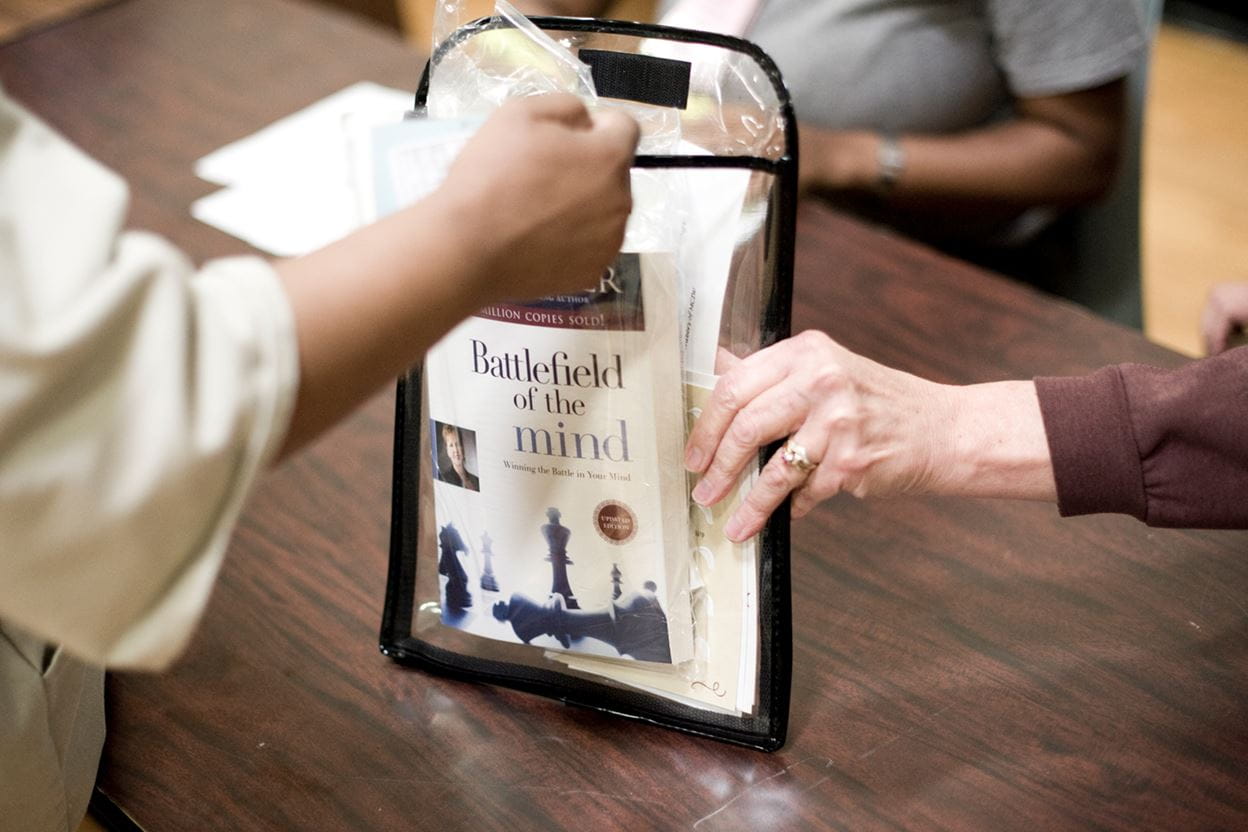 MILLION COPIES SOLD!
Battlefield
of the
mind
Winning the Battle in Your Mind
UPDATED
EDITION